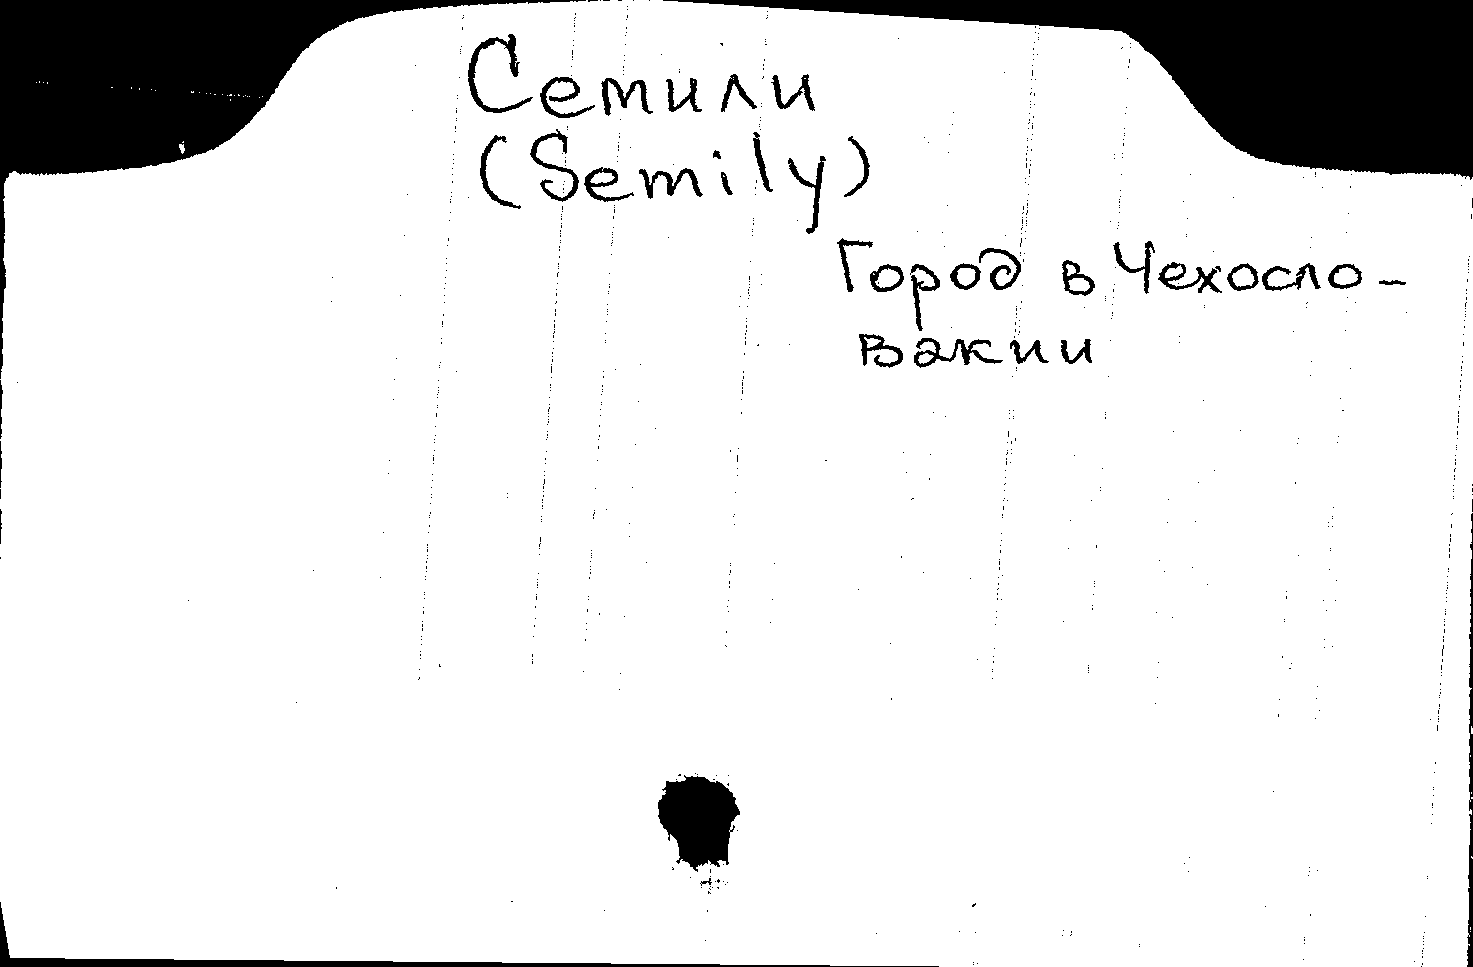 Семили
(Semily)
Город в Чехосло-
вакии